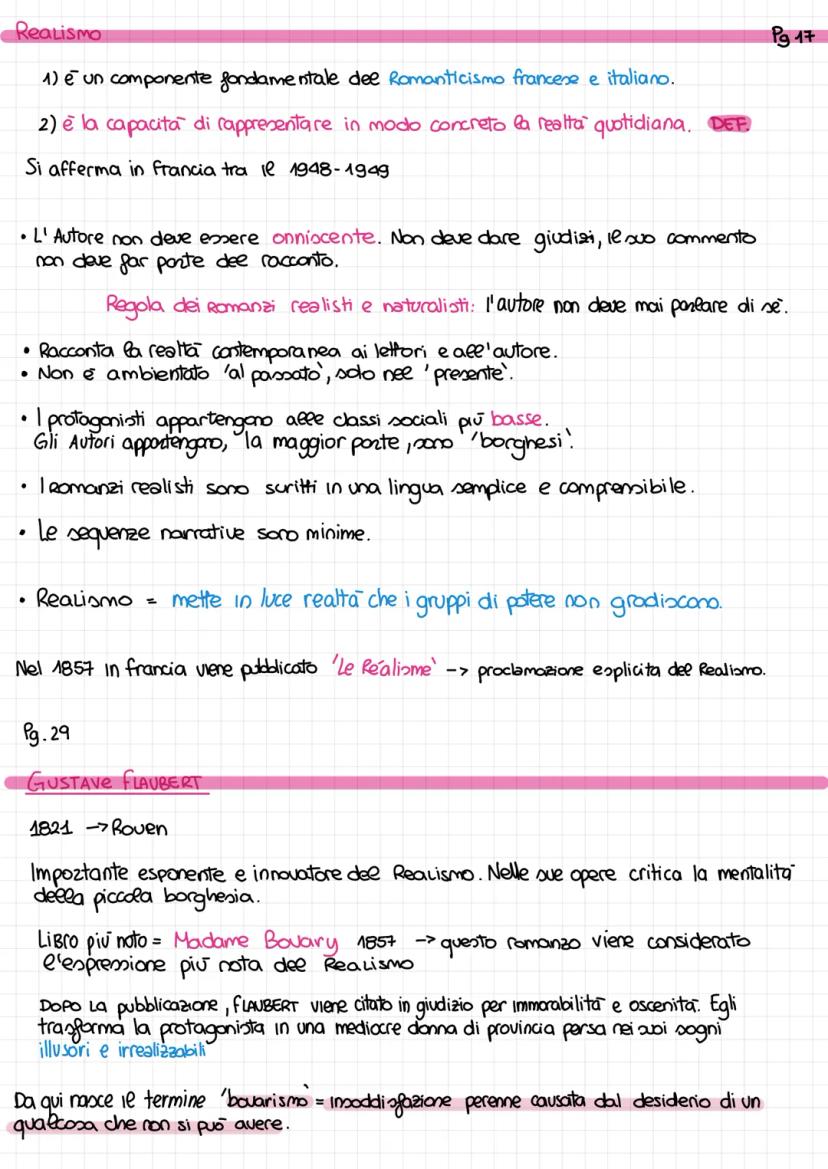 Realismo
Pg 17
1) é un componente fondamentale del Romanticismo francese e italiano.
2) è la capacità di rappresentare in modo concreto la realtà quotidiana. DEF.
Si afferma in Francia tra il 1948-1949
• L' Autore non deve essere onniscente. Non deve dare giudizi, il suo commento
non deve far parte del racconto.
Regola dei Romanzi realisti e naturalisti: l'autore non deve mai parlare di sè.
• Racconta la realtà contemporanea ai lettori e all'autore.
• Non è ambientato 'al passato', solo nel 'presente'.
• I protagonisti appartengono alle classi sociali più basse.
Gli Autori appartengono, la maggior parte, sono 'borghesi'.
• I Romanzi realisti sono scritti in una lingua semplice e comprensibile.
• Le sequenze narrative sono minime.
• Realismo = mette in luce realtà che i gruppi di potere non gradiscono.
Nel 1857 in francia viene pubblicato 'Le Réalisme' -> proclamazione esplicita del Realismo.
Pg. 29
GUSTAVE FLAUBERT
1821 -> Rouen
Importante esponente e innovatore del Realismo. Nelle sue opere critica la mentalità
della piccola borghesia.
Libro più noto = Madame Bovary 1857 -> questo romanzo viene considerato
l'espressione più nota del Realismo
Dopo la pubblicazione, FLAUBERT viene citato in giudizio per immorabilità e oscenità. Egli
trasforma la protagonista in una mediocre donna di provincia persa nei suoi sogni
illusori e irrealizzabili
Da qui nasce il termine 'bovarismo' = insoddisfazione perenne causata dal desiderio di un
qualcosa che non si può avere.